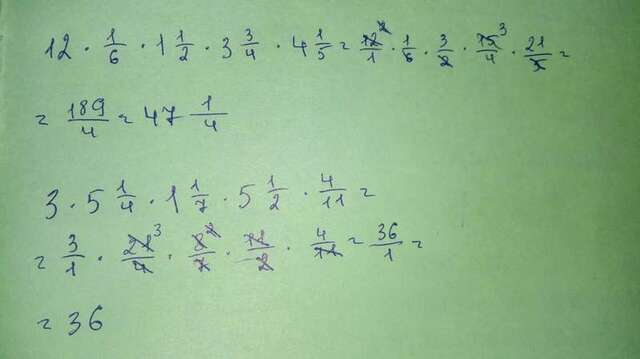 12 · 1/6 · 1 1/2 · 3 3/4 · 4 1/5 = 12²/1 · 1/6 · 3/2 · 15³/4 · 21/5 =
= 189/4 = 47 1/4
3 · 5 1/4 · 1 1/7 · 5 1/2 · 4/11 =
= 3/1 · 21³/4 · 8²/7 · 11/2 · 4/11 = 36/1 =
= 36